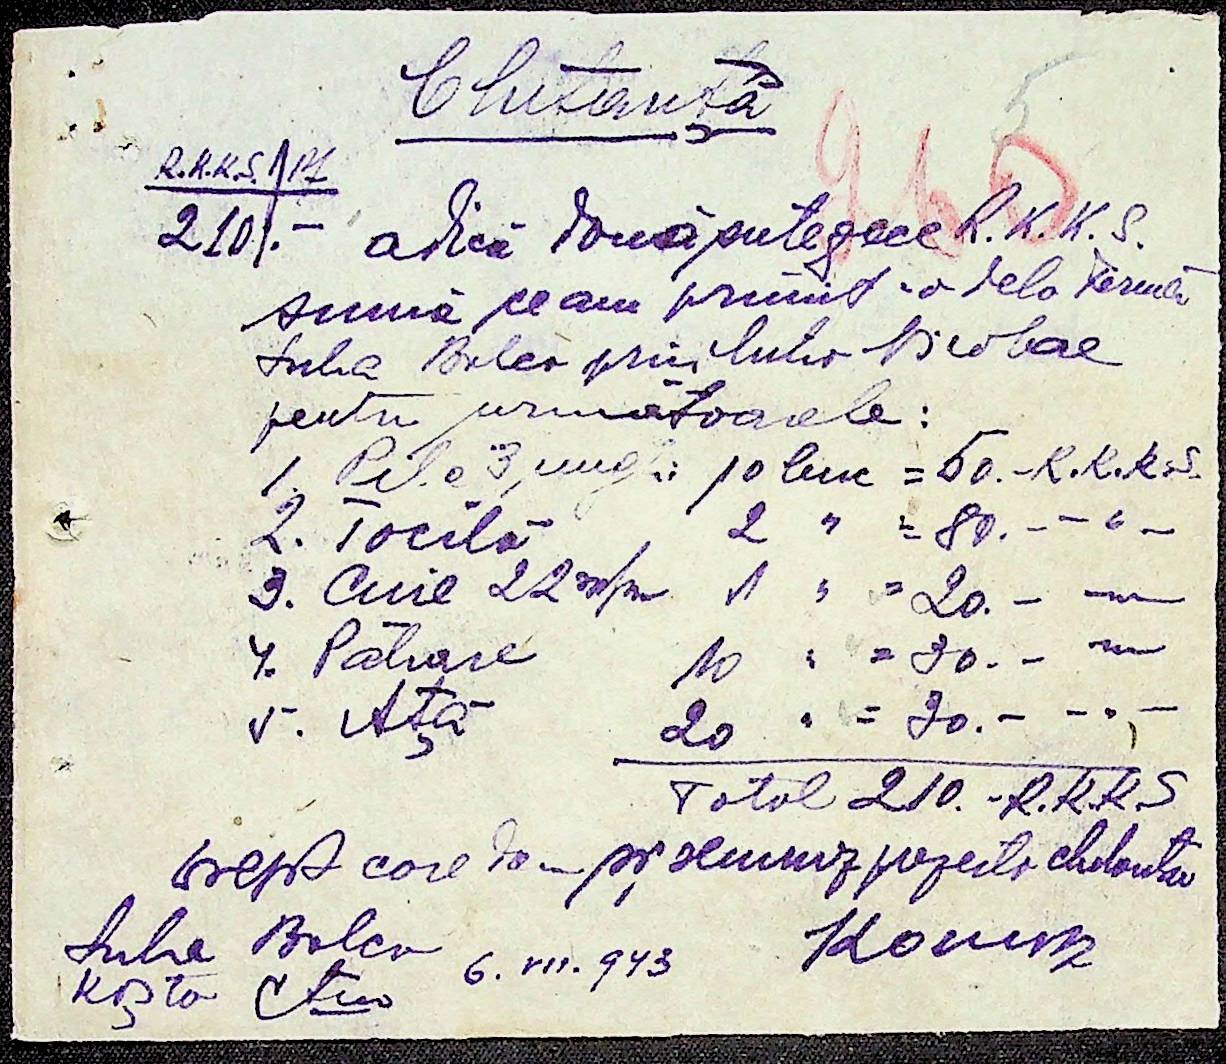 Chitanță
5
R.K.K.S.
210.- adică două sute zece R.K.K.S.
sumă ce am primit-o dela firma
Luba Bolco prin Nicolae
pentru următoarele:
1. Pile 3 10 buc = 50.- R.K.K.S.
2. Tocilă 2 " = 80.- - " -
3. Cuie 22 1 " = 20.- - " -
4. Pahare 10 " = 30.- - " -
5. Ață 20 " = 30.- - " -
Total 210.- R.K.K.S
drept care dam și semnez chitanta
Luba Bolco
6. VII. 943